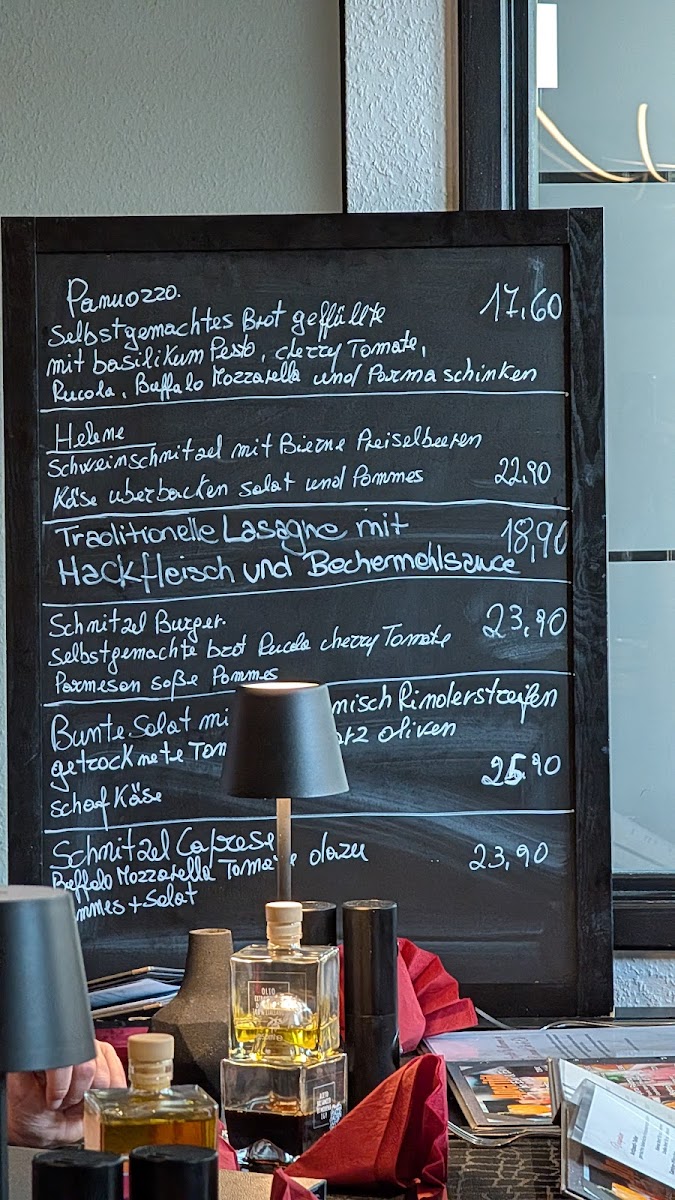 Panuozzo. 17,60
Selbstgemachtes Brot gefüllte
mit basilikum Pesto, cherry Tomate,
Rucola, Buffalo Mozzarella und Parma schinken
Helene
Schweinschnitzel mit Bierne Preiselbeeren
Käse uberbacken salat und Pommes 22,90
Traditionelle Lasagne mit 18,90
Hackfleisch und Bechermehlsauce
Schnitzel Burger. 23,90
selbstgemachte brot Rucola cherry Tomate
Parmesan soße Pommes
Bunte Salat mi misch Rinderstreifen
getrocknete Tom oliven
schaf Käse 25,90
Schnitzel Caprese 23,90
Buffalo Mozzarella Tomate dazu
mmes + salat
OLIO